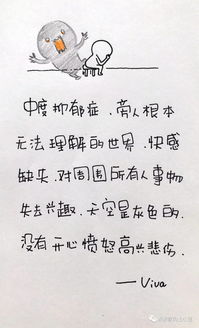 中度抑郁症、旁人根本
无法理解的世界、快感
缺失、对周围所有人事物
失去兴趣、天空是灰色的、
没有开心愤怒高兴悲伤、
—— Viva